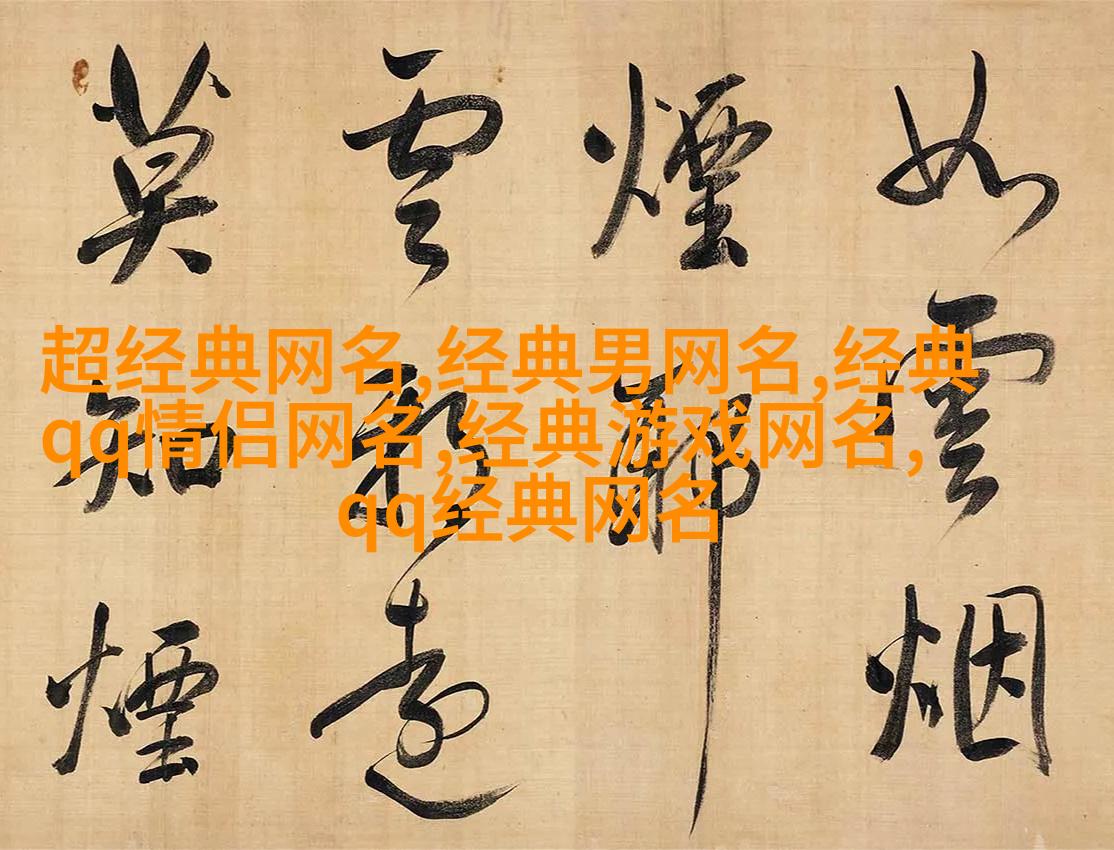 超经典网名,经典男网名,经典
qq情侣网名,经典游戏网名,
qq经典网名
如雲烟
煙
雲遠
莫知煙